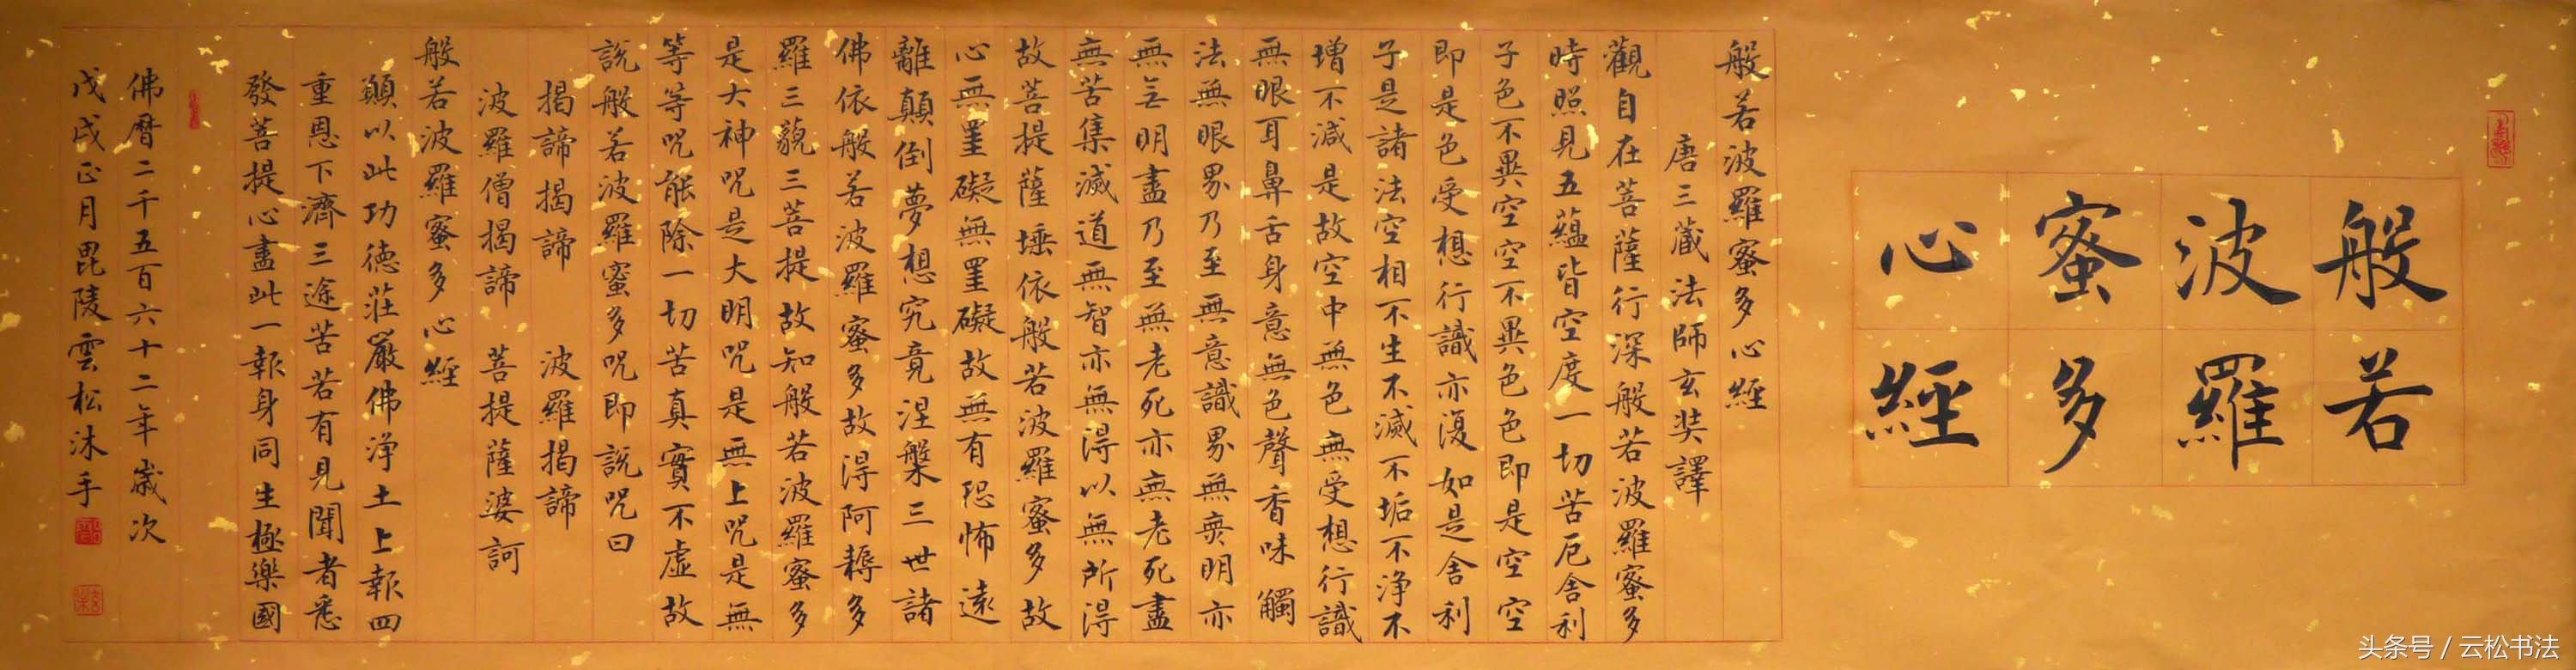 般若
波羅
蜜多
心經
般若波羅蜜多心經
唐三藏法師玄奘譯
觀自在菩薩行深般若波羅蜜多
時照見五蘊皆空度一切苦厄舍利
子色不異空空不異色色即是空空
即是色受想行識亦復如是舍利
子是諸法空相不生不滅不垢不淨不
增不減是故空中無色無受想行識
無眼耳鼻舌身意無色聲香味觸
法無眼界乃至無意識界無無明亦
無無明盡乃至無老死亦無老死盡
無苦集滅道無智亦無得以無所得
故菩提薩埵依般若波羅蜜多故
心無罣礙無罣礙故無有恐怖遠
離顛倒夢想究竟涅槃三世諸
佛依般若波羅蜜多故得阿耨多
羅三藐三菩提故知般若波羅蜜多
是大神咒是大明咒是無上咒是無
等等咒能除一切苦真實不虛故
說般若波羅蜜多咒即說咒曰
揭諦揭諦 波羅揭諦
波羅僧揭諦 菩提薩婆訶
般若波羅蜜多心經
願以此功德莊嚴佛淨土上報四
重恩下濟三途苦若有見聞者悉
發菩提心盡此一報身同生極樂國
佛曆二千五百六十二年歲次
戊戌正月毘陵雲松沐手
头条号 / 云松书法